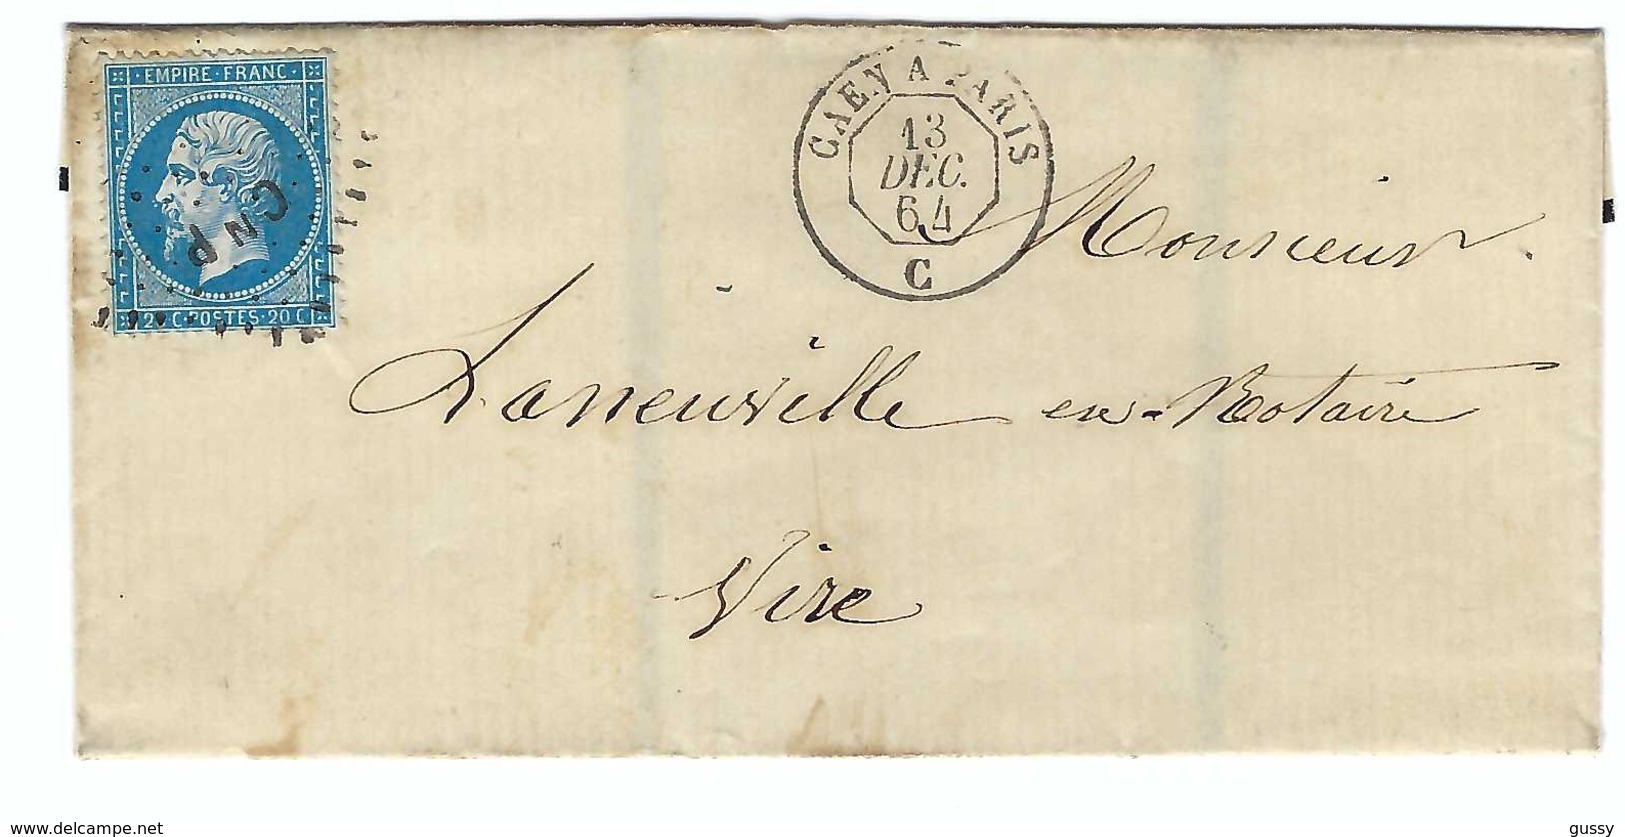 EMPIRE · FRANC
CnP
20 C · POSTES · 20 C
CAEN A PARIS
13
DEC.
64
C
Monsieur
Laneuville ex-Notaire
Vire
www.delcampe.net
gussy